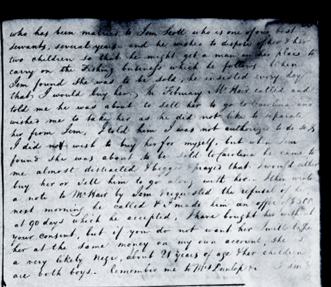 who has been married to Tom Scott who is one of our best
servants, several years and he wishes to dispose of her & her
two children so that he might get a man in her place to
carry on the fishing business which he follows. When
Tom found she was to be sold, he insisted every day
that I would buy her, in February Mr Hair called and
told me he was about to sell her to go to Carolina and
wishes me to take her as he did not like to separate
her from Tom, I told him I was not authorized to do so &
I did not wish to buy her for myself, but when
found she was about to be sold to Carolina he came to
me almost distracted & begged & prayed that I would either
buy her or sell him to go along with her. I then wrote
a note to Mr Hair by the refusal of her
next morning he called & I made him an offer $500
at 90 days which he accepted, I have bought her with
your consent, but if you do not want her I will take
her at the same money on my own account, she is
a very likely negro, about 21 years of age & her children
are both boys. Remember me to Mrs Dunlop